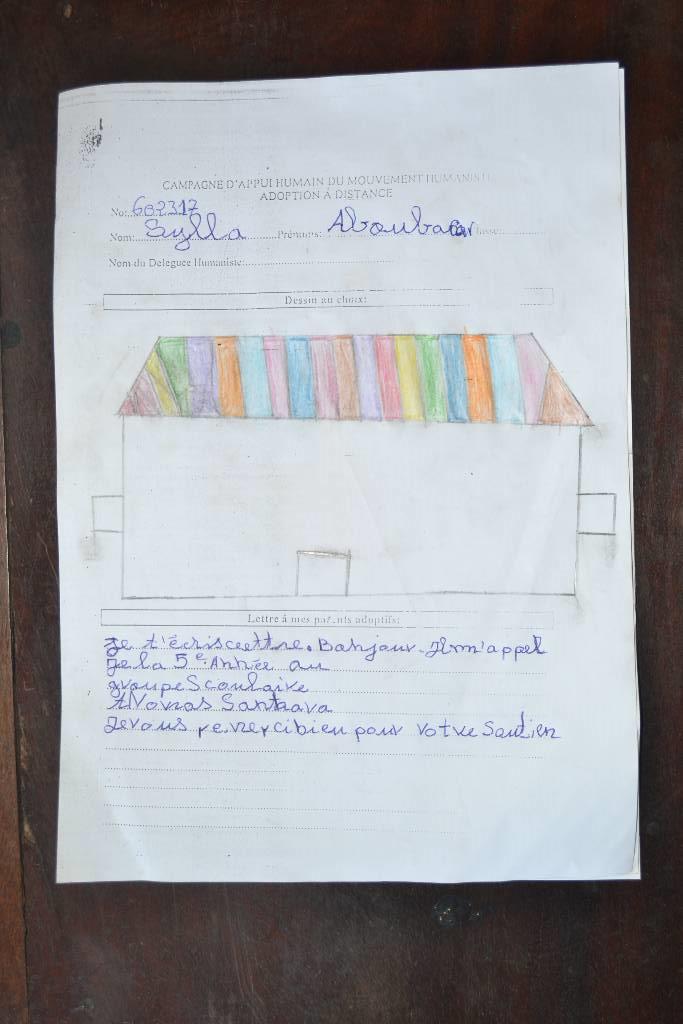 CAMPAGNE D'APPUI HUMAIN DU MOUVEMENT HUMANISTE
ADOPTION À DISTANCE
No: 602317
Nom: Sylla Prénoms: Aboubacar Classe:
Nom du Deleguee Humaniste:
Dessin au choix:
Lettre à mes parents adoptifs:
Je t'écriscettre. Bonjour. Jem'appel
Je la 5e Année au
groupe Scoulaire
Sankava
Jevous remercibien pour votre Soutien